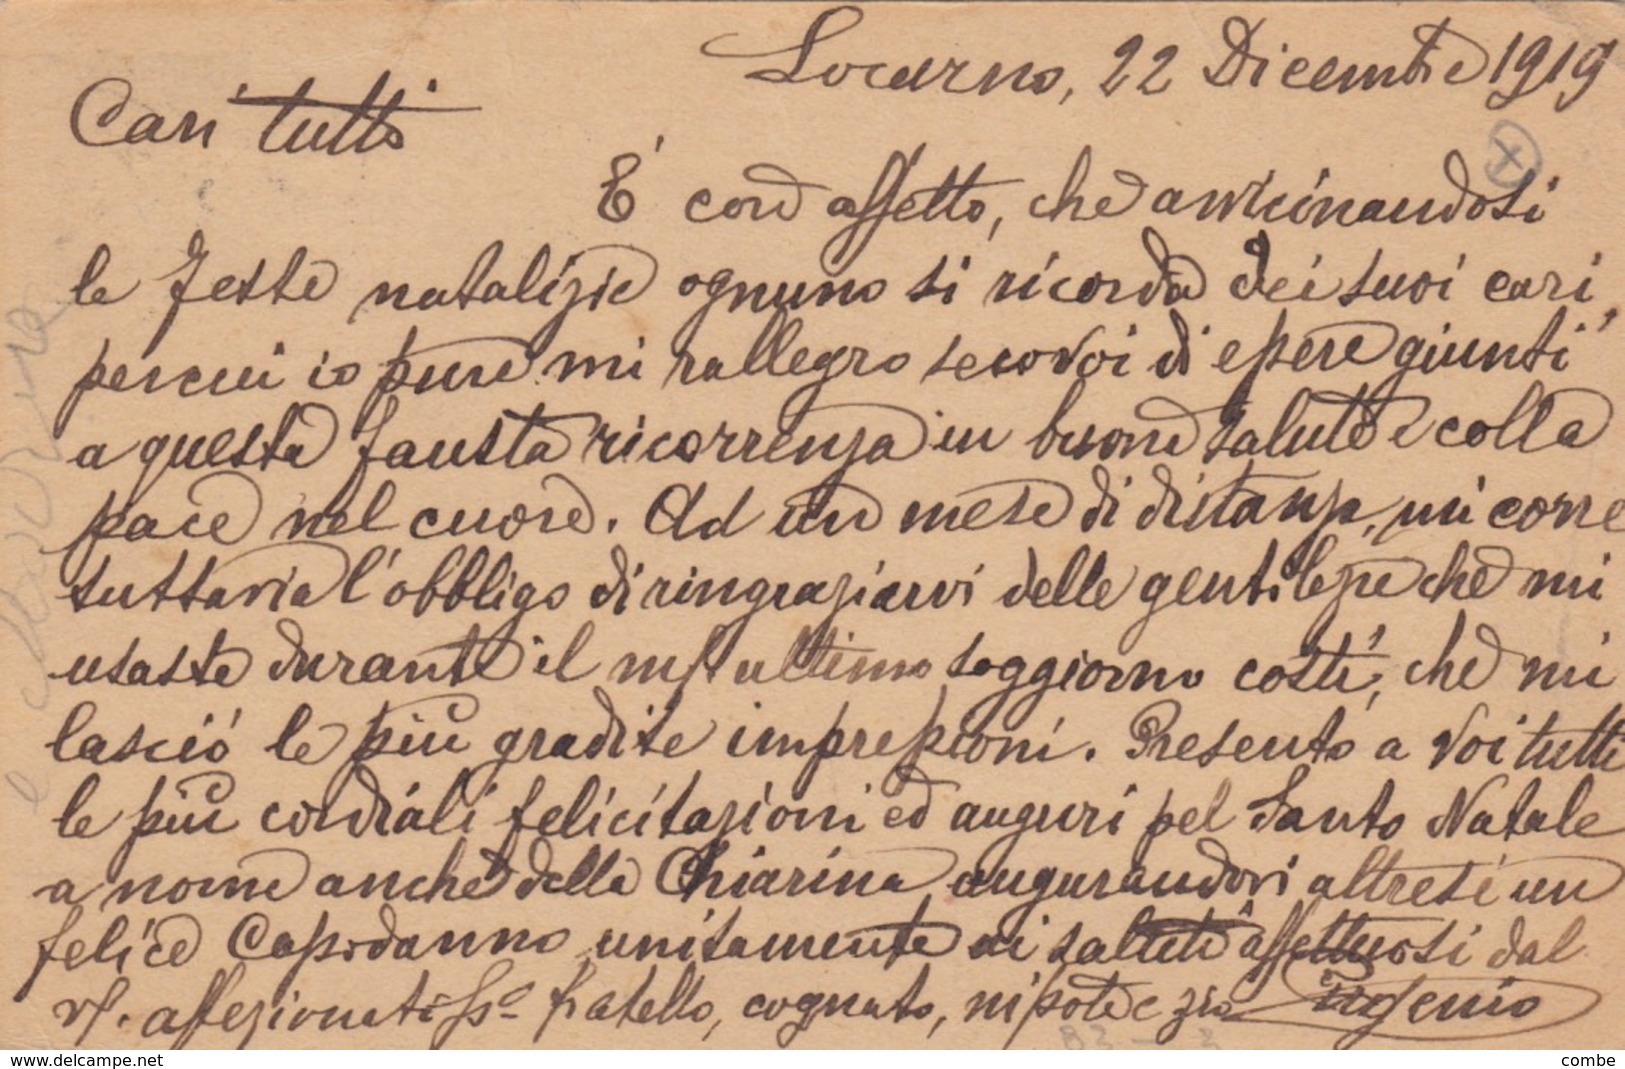 Locarno, 22 Dicembre 1919
Cari tutti
E' con affetto, che avvicinandosi
le Feste natalizie ognuno si ricorda dei suoi cari,
percui io pure mi rallegro seco Voi di essere giunti
a questa fausta ricorrenza in buone salute e colla
pace nel cuore. Ad un mese di distanza, mi corre
tuttavia l'obbligo di ringraziarvi delle gentilezze che mi
usaste durante il mio ultimo soggiorno costì, che mi
lasciò le più gradite impressioni. Presento a Voi tutti
le più cordiali felicitazioni ed auguri pel Santo Natale
a nome anche della Chiarina augurandovi altresì un
felice Capodanno unitamente ai saluti affettuosi dal
Vs. affezionatiss° fratello, cognato, nipote e zio Eugenio
www.delcampe.net
combe